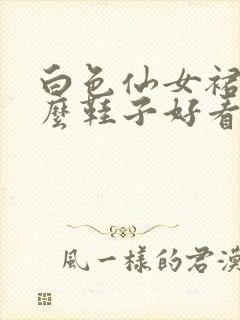 白色仙女裙
麼鞋子好看
風一樣的君漢